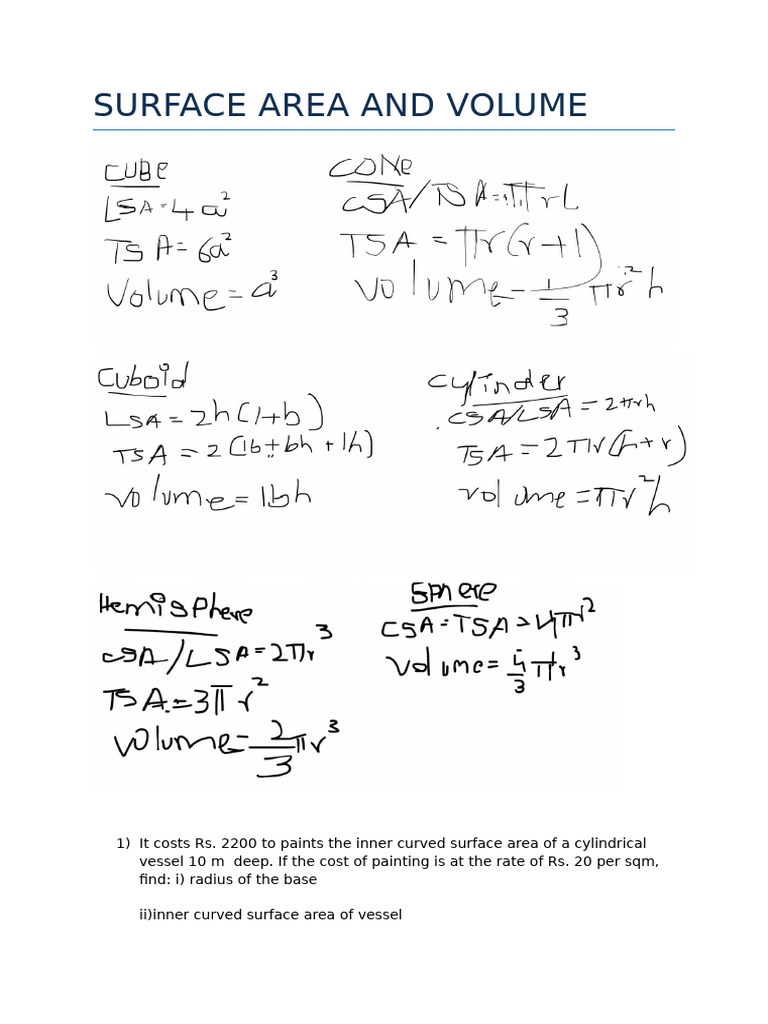 SURFACE AREA AND VOLUME
CUBE
LSA=4a²
TSA=6a²
Volume=a³
CONe
CSA/TSA=πrL
TSA=πr(r+l)
volume=1/3 πr²h
Cuboid
LSA=2h(l+b)
TSA=2(lb+bh+lh)
volume=lbh
Cylinder
CSA/LSA=2πrh
TSA=2πr(h+r)
volume=πr²h
Hemisphere
CSA/LSA=2πr³
TSA=3πr²
volume=2/3 πr³
Sphere
CSA=TSA=4πr²
volume=4/3 πr³
1) It costs Rs. 2200 to paints the inner curved surface area of a cylindrical
vessel 10 m deep. If the cost of painting is at the rate of Rs. 20 per sqm,
find: i) radius of the base
ii)inner curved surface area of vessel